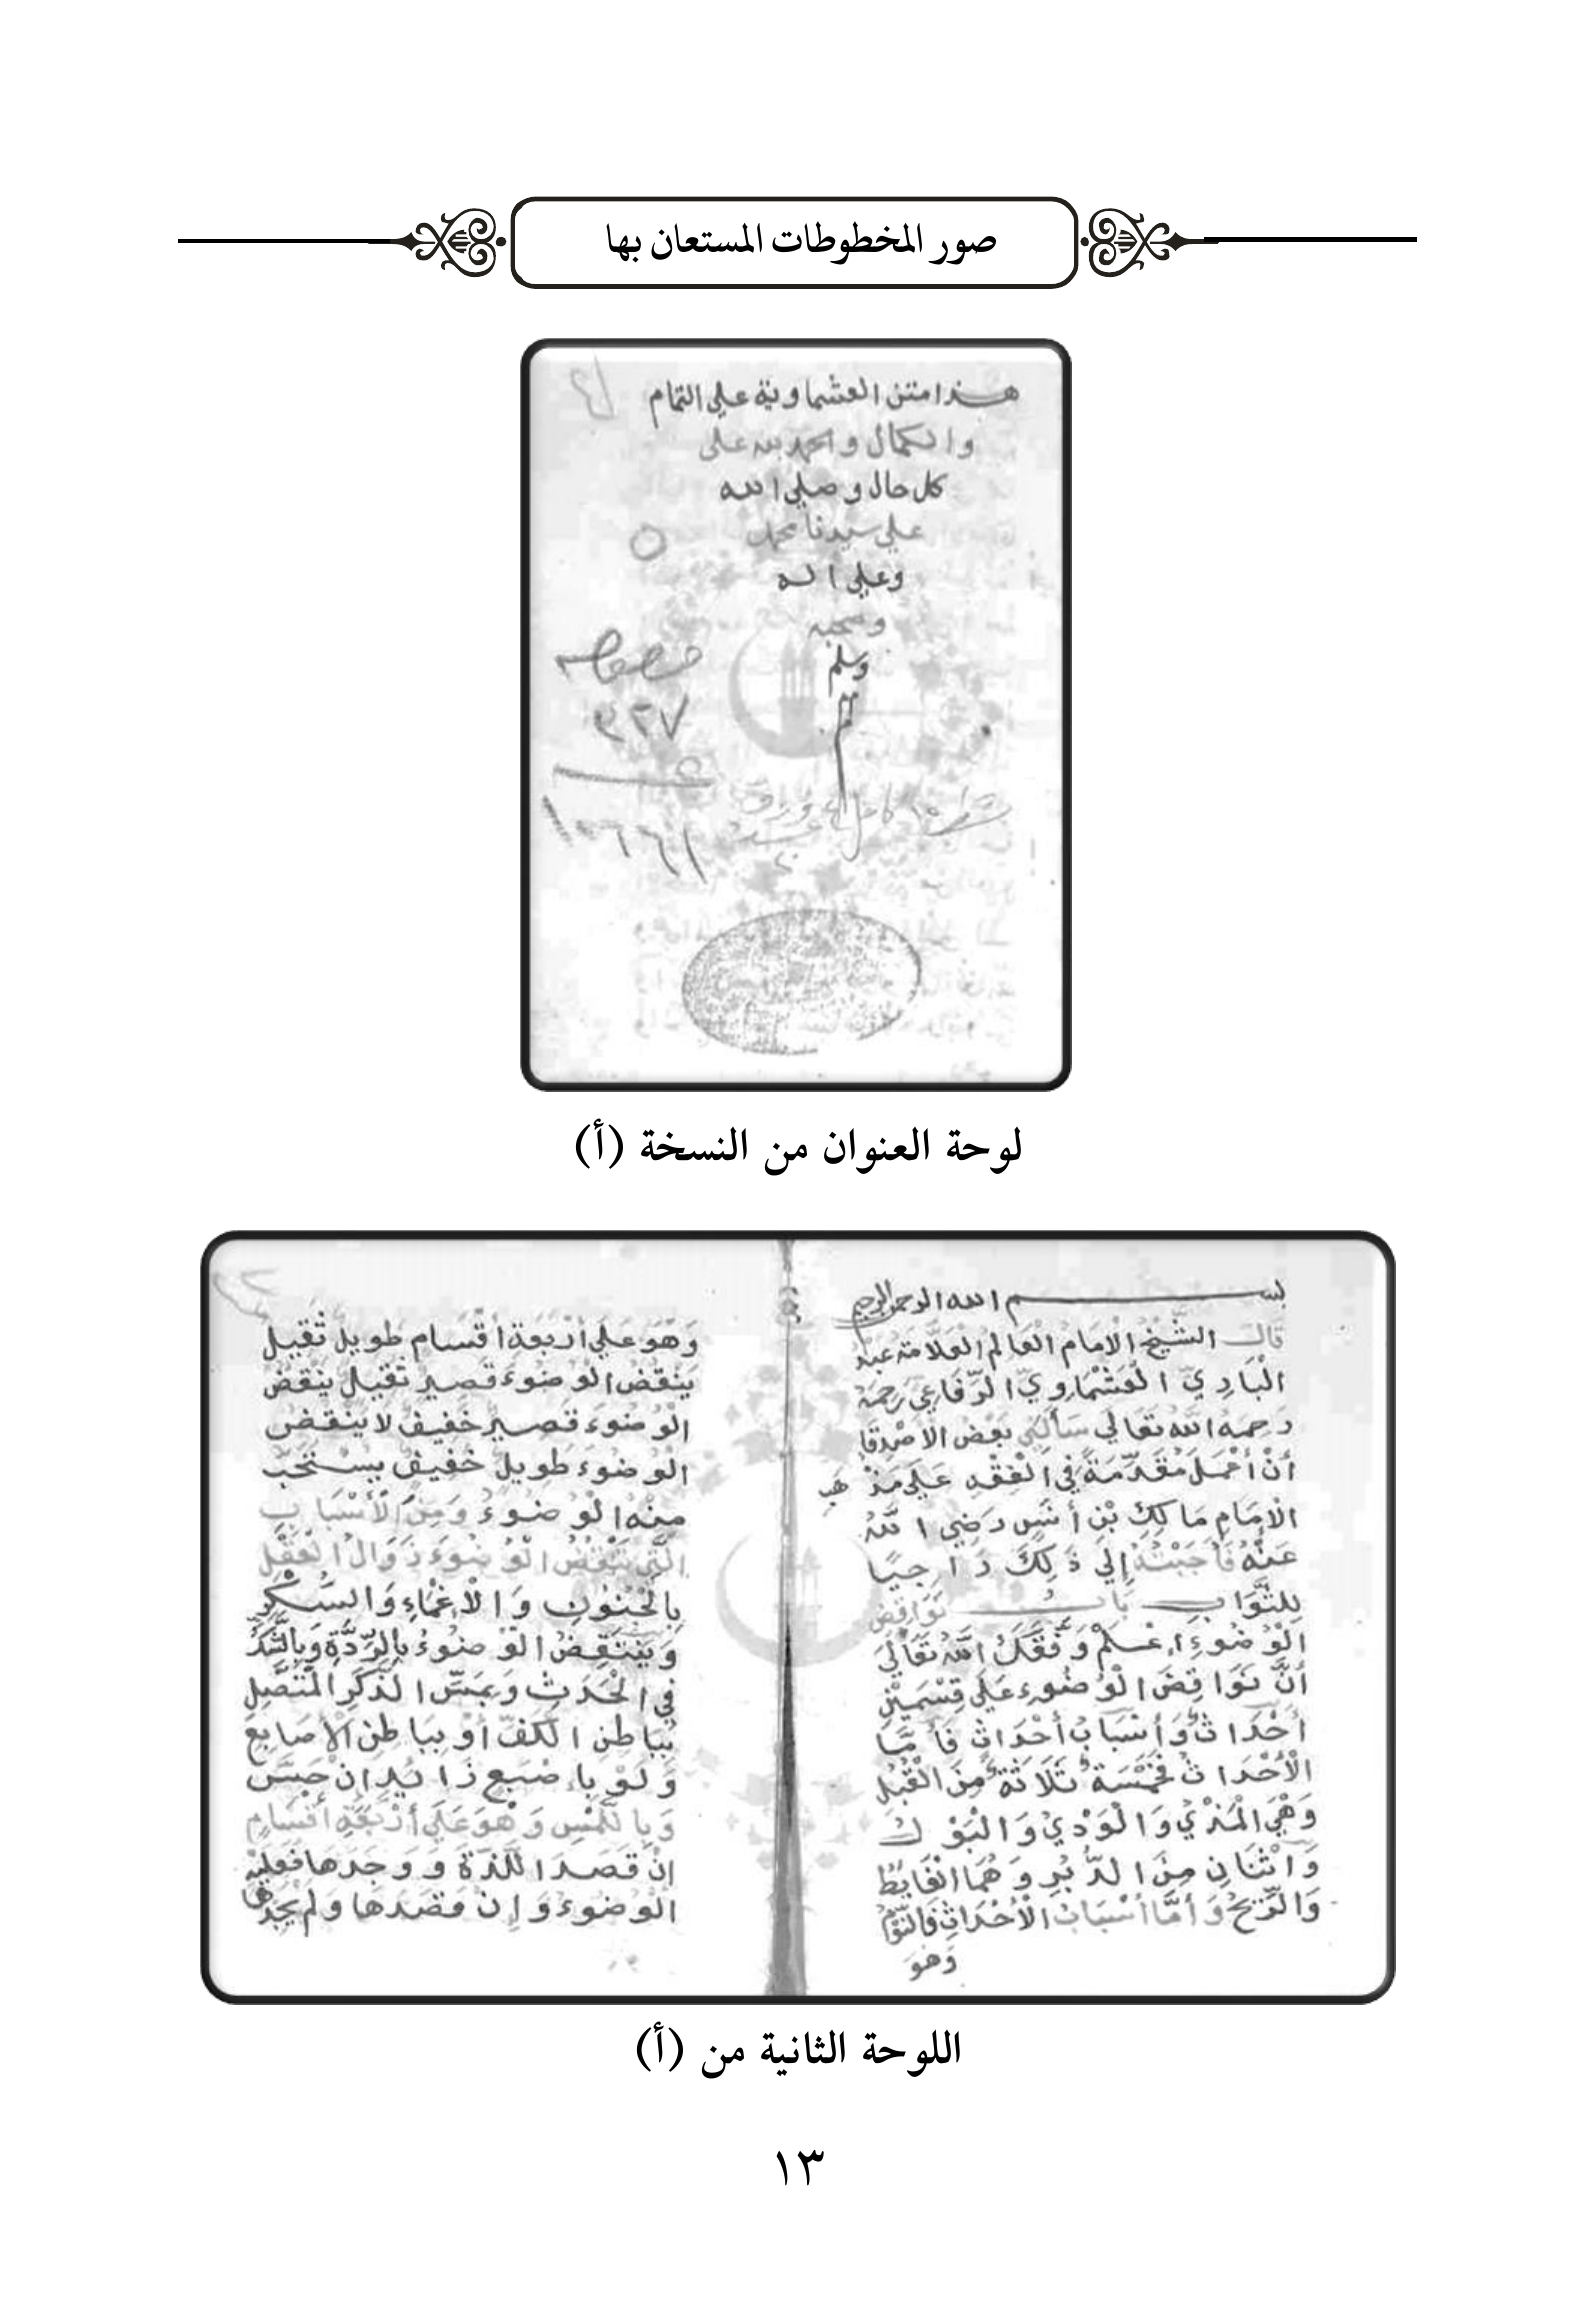 صور المخطوطات المستعان بها
هذا متن العشماوية علي التمام
والكمال والحمد لله على
كل حال وصلي الله
علي سيدنا محمد
وعلي اله
وصحبه
وسلم
لوحة العنوان من النسخة (أ)
بسم الله الرحمن الرحيم
قال الشيخ الامام العالم العلامة عبد
الباري العشماوي الرفاعي رحمه
رحمه الله تعالي سألني بعض الاصدقا
أن أعمل مقدمة في الفقه علي مذهب
الامام مالك بن أنس رضي الله
عنه فأجبته إلي ذلك راجيا
للثواب باب نواقض
الوضوء اعلم وفقك الله تعالي
أن نواقض الوضوء علي قسمين
أحداث وأسباب أحداث فأما
الأحداث فخمسة ثلاثة من القبل
وهي المذي والودي والبول
واثنان من الدبر وهما الغايط
والريح وأما أسباب الأحداث فالنوم
وهو
وهو علي أربعة أقسام طويل ثقيل
ينقض الوضوء قصير ثقيل ينقض
الوضوء قصير خفيف لا ينقض
الوضوء طويل خفيف يستحب
منه الوضوء ومن الأسباب
التي تنقض الوضوء زوال العقل
بالجنون والاغماء والسكر
وينتقض الوضوء بالردة وبالشك
في الحدث وبمس الذكر المتصل
بباطن الكف أو بباطن الأصابع
ولو باصبع زايد ان حس
وباللمس وهو علي أربعة أقسام
إن قصد اللذة ووجدها فعليه
الوضوء وإن قصدها ولم يجدها
اللوحة الثانية من (أ)
١٣